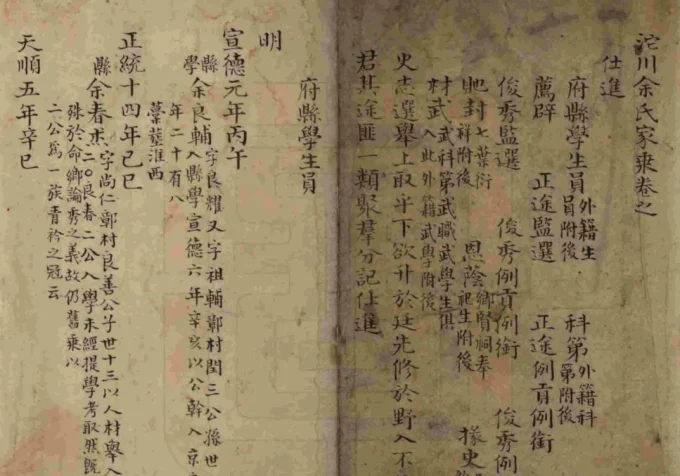 沱川余氏家乘卷之
仕進
府縣學生員外籍生員附後 科第外籍科第附後
薦辟 正途監選 正途例貢例銜
俊秀監選 俊秀例貢例銜 俊秀例
貤封七葉衍祥附後 恩蔭鄉賢祠奉祀生附後 掾史
材武武科第武職武學生俱入此外籍武學附後
史志選舉上取乎下欲升於廷先修於野入不
君其途匪一類聚羣分記仕進
府縣學生員
明
宣德元年丙午
縣學余良輔字良耀又字祖輔鄣村閏三公孫世
入縣學宣德六年辛亥以公幹入京
年二十有八
藁塟淮西
正統十四年己巳
縣余春杰字尚仁鄣村良善公子世十三以人材舉入
二〇良春二公入學未經提學考取然旣
殊於命鄉論秀之義故仍舊乘以
二公爲一族青衿之冠云
天順五年辛巳